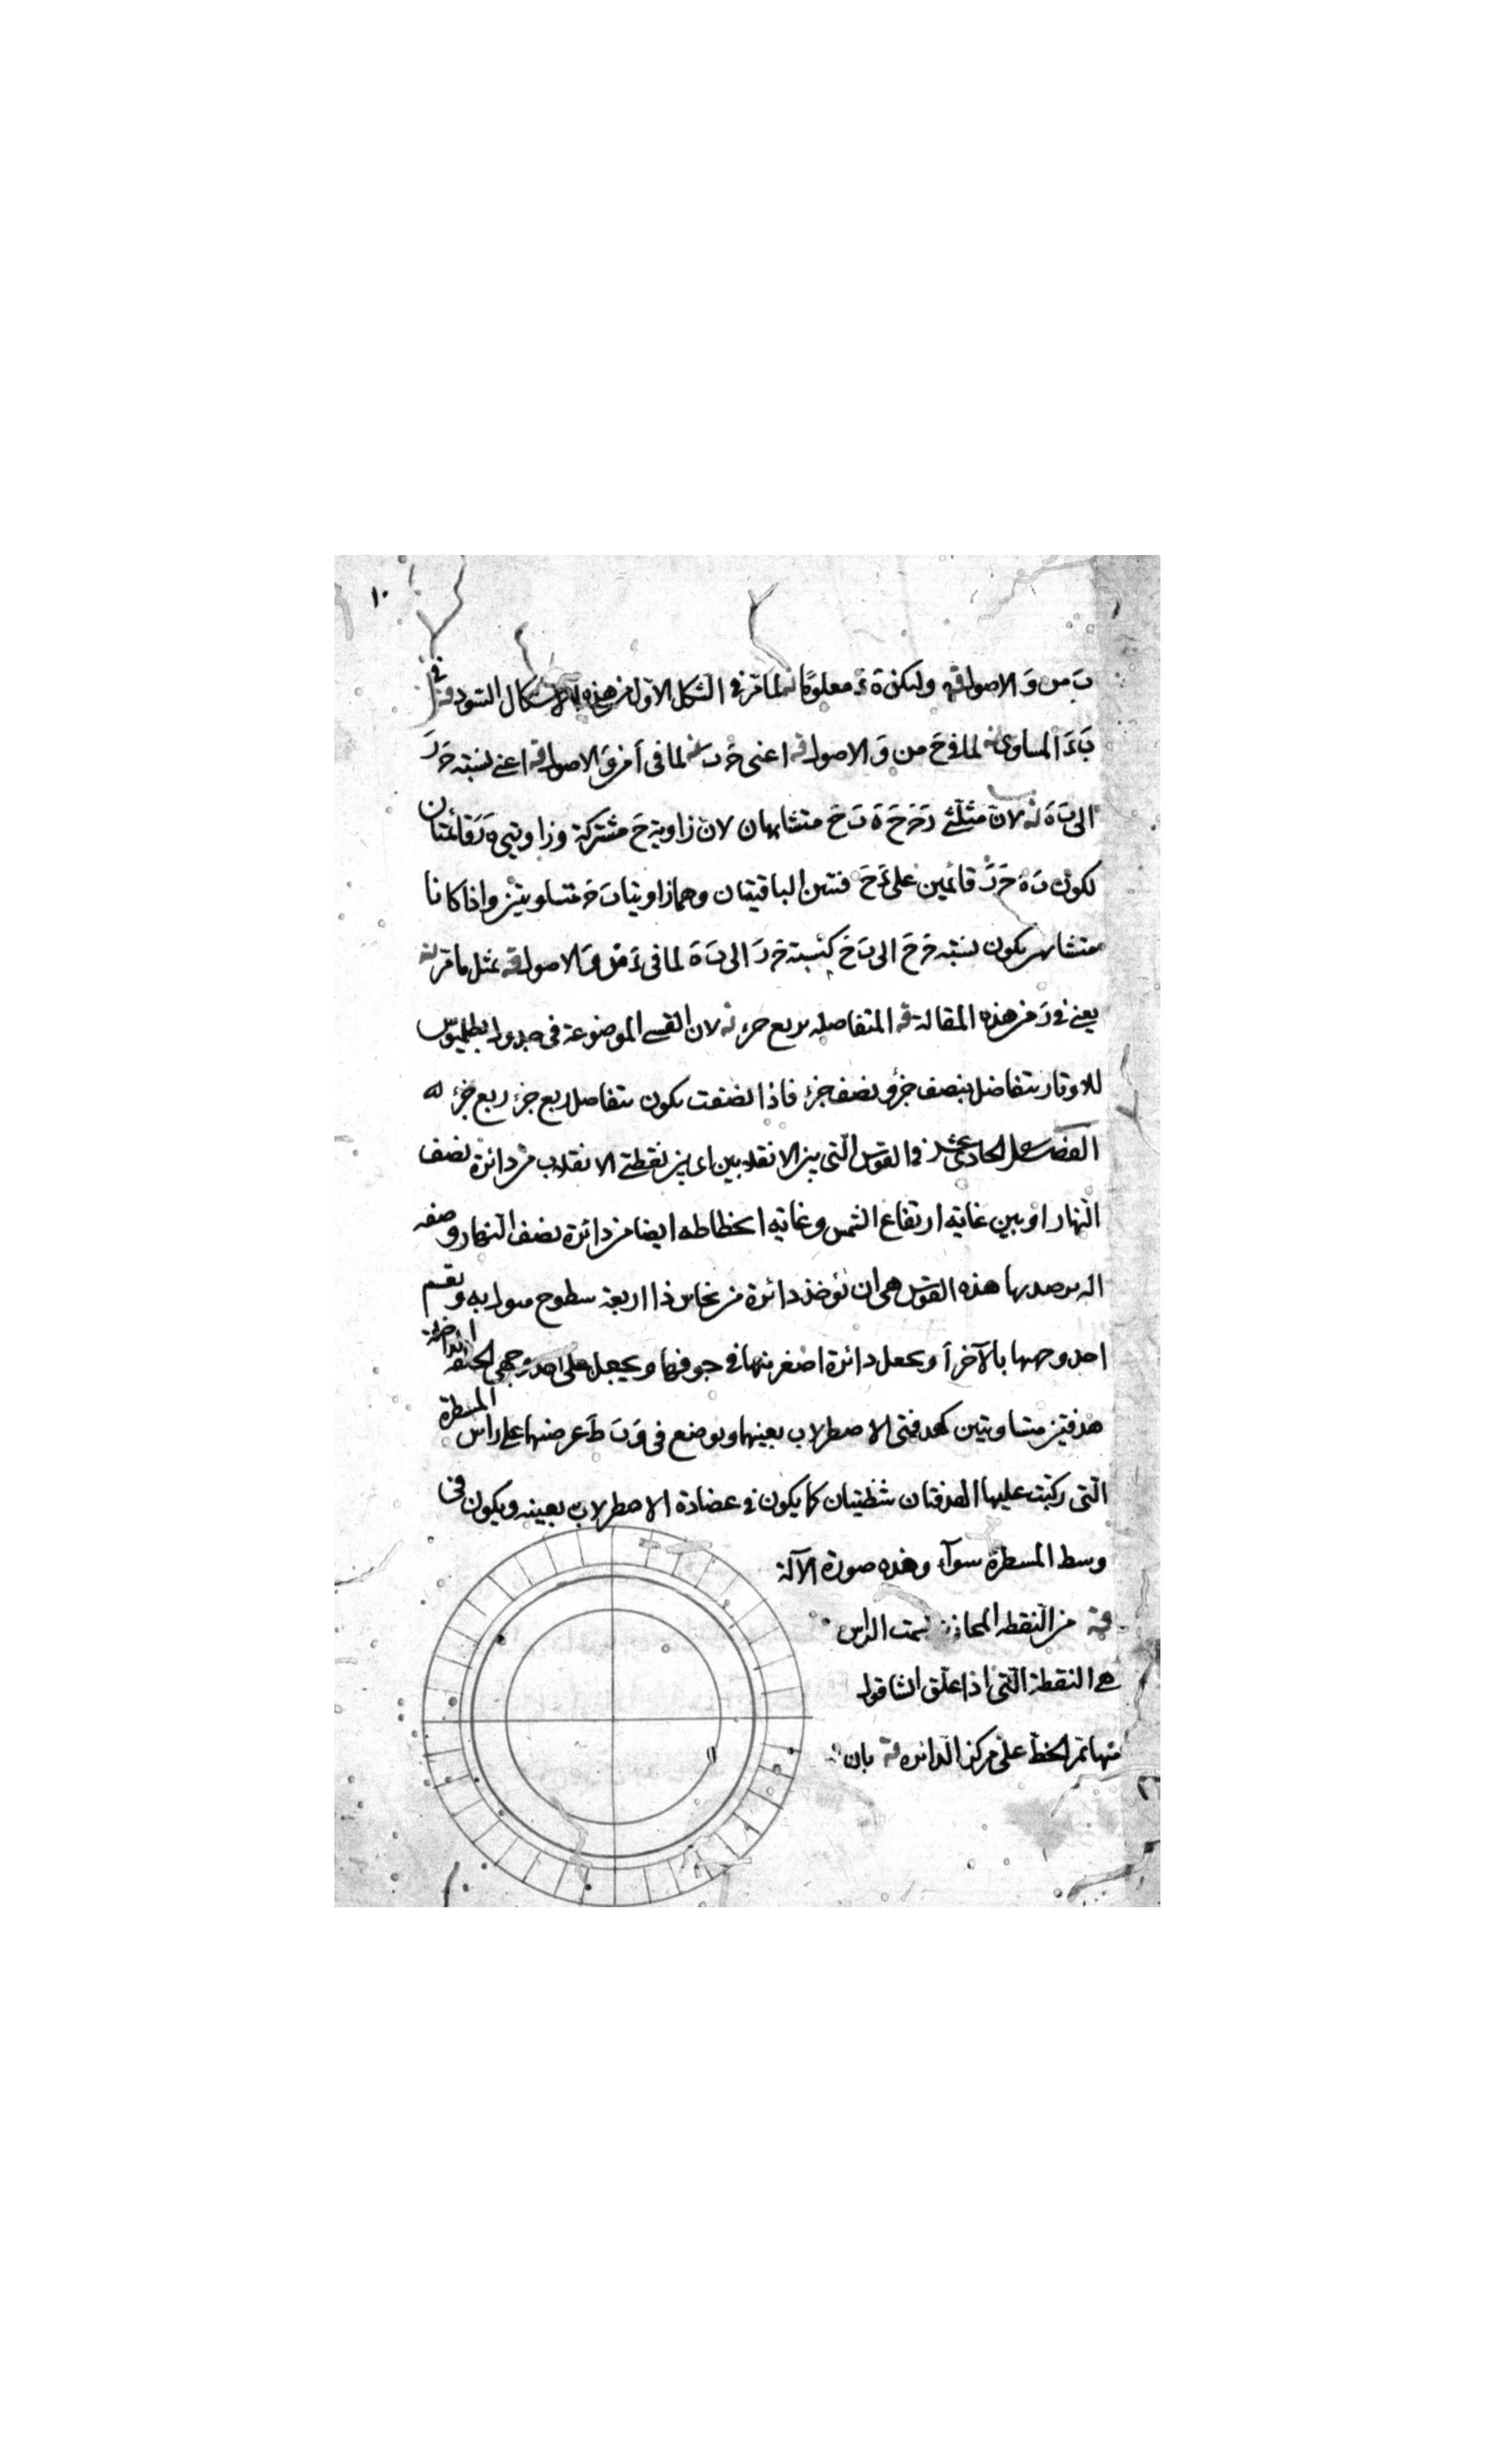 ١٠
بَ من وَ الاصول قه وليكن ةَ ءَ معلومًا لما مرّ فى الشكل الاوّل من هذه الاشكال السّود قه فى
بَ ءَ المساوى لما فى حَ من وَ الاصول قه اعنى حَ بَ لما فى اَ من وَ الاصول قه اعنى نسبة حَ رَ
الى بَ ةَ لان مثلّثى رَ حَ ةَ بَ حَ متشابهان لانّ زاوية حَ مشتركة وزاويتى ةَ رَ قائمتان
لكون بَ ةَ حَ رَ قائمين على ءَ حَ فتبين الباقيتان وهما زاويتا بَ حَ متساويتين واذا كانا
متشابهين يكون نسبة حَ حَ الى بَ حَ كنسبة حَ رَ الى بَ ةَ لما فى ءَ من وَ الاصول قه بمثل ما مرّ له
يعنى فى رَ من هذه المقالة قه المتفاضله بربع جزء له لان القسى الموضوعة فى جدول بطلميوس
للاوتار يتفاضل بنصف جزؤ ونصف جزء فاذا نصفت يكون يتفاضل ربع جزء ربع جزء له
الفصل الحادى عشر فى القوس الّتى بين الانقلابين اى بين نقطتى الانقلاب من دائرة نصف
النّهار او بين غاية ارتفاع الشمس وغاية انحطاطه ايضا من دائرة نصف النّهار وصفه
اله يرصد بها هذه القوس هى ان نؤخذ دائرة من نحاس ذا اربعة سطوح متوازيه ونقسم
احد وجهيها بالآخرأ ويجعل دائرة اصغر منها فى جوفها ويجعل على احد وجهى الحلقه
هدفتين متساويتين كهدفتى الاصطرلاب بعينها ويوضع فى وَ بَ طَ عرضها على راس المسطرة
الّتى ركبت عليها الهدفتان شظيتان كما يكون فى عضادة الاصطرلاب بعينه ويكون فى
وسط المسطرة سوآء وهذه صورة الآلة
قه من النّقطه المحاذية لسمت الراس
هى النقطة الّتى اذا علّق الشاقول
منها تمّر الخطّ على مركز الدائره قه بان